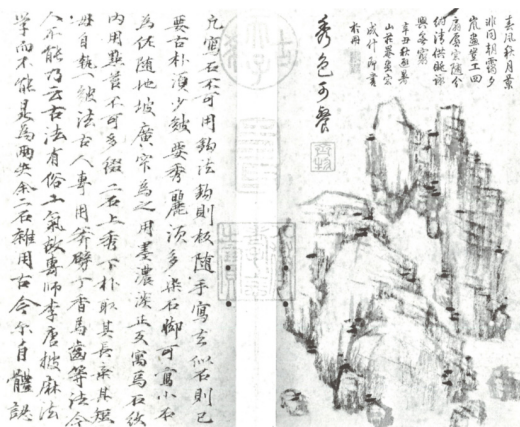 春風秋月景
非同朝靄夕
嵐盡望工四
扇層雲隨分
付清供晚詠
興無窮
辛丑秋
山莊
成什即書
於冊
秀色可餐
凡寫石不可用鉤法鉤則板隨手寫去似石則已
要古朴須少皴要秀麗須多染石腳可寫小石
為佐隨地坡廣窄為之用墨濃淡正反寫為石紋
內用點苔不可多綴二石上秀下朴取其長兼其短
毋自執一皴法古人專用斧劈丁香馬齒等法今
人不能乃云古法有俗工氣故專師李唐披麻法
學而不能是為兩失余二石雜用古今亦自體認